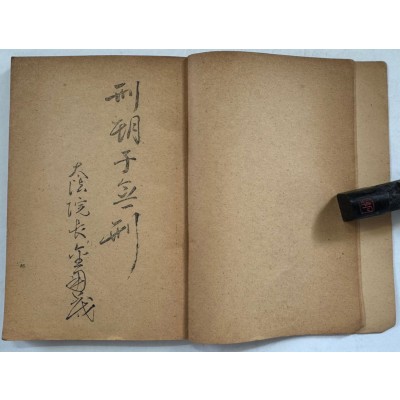 刑期于無刑
大法院長金用茂